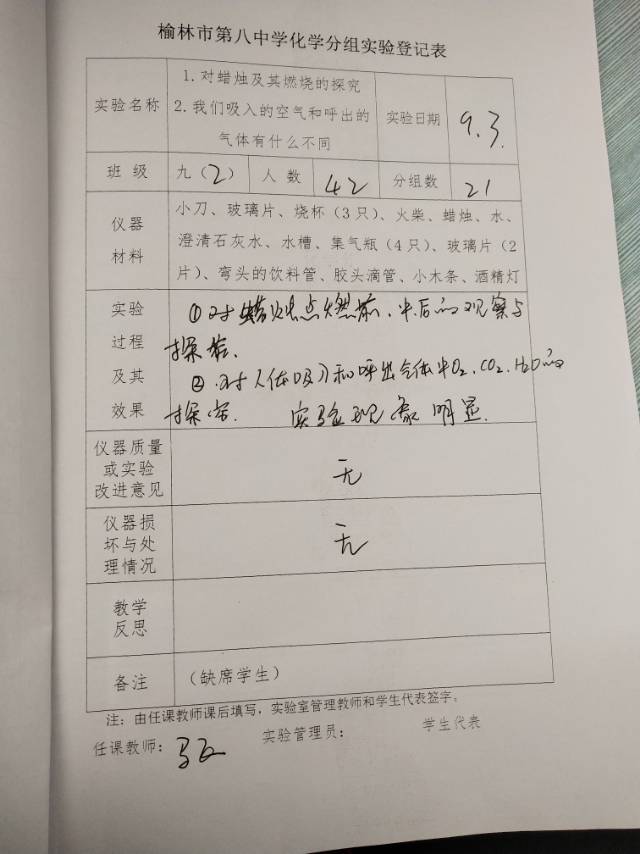 榆林市第八中学化学分组实验登记表
实验名称
1.对蜡烛及其燃烧的探究
2.我们吸入的空气和呼出的
气体有什么不同
实验日期
9.3.
班 级
九（2）
人 数
42
分组数
21
仪器
材料
小刀、玻璃片、烧杯（3只）、火柴、蜡烛、水、
澄清石灰水、水槽、集气瓶（4只）、玻璃片（2
片）、弯头的饮料管、胶头滴管、小木条、酒精灯
实验
过程
及其
效果
①对蜡烛点燃前、中、后的观察与
探究.
②对人体吸入和呼出气体中O₂、CO₂、H₂O的
探究. 实验现象明显.
仪器质量
或实验
改进意见
无
仪器损
坏与处
理情况
无
教学
反思
备注
（缺席学生）
注：由任课教师课后填写，实验室管理教师和学生代表签字。
任课教师：
实验管理员：
学生代表